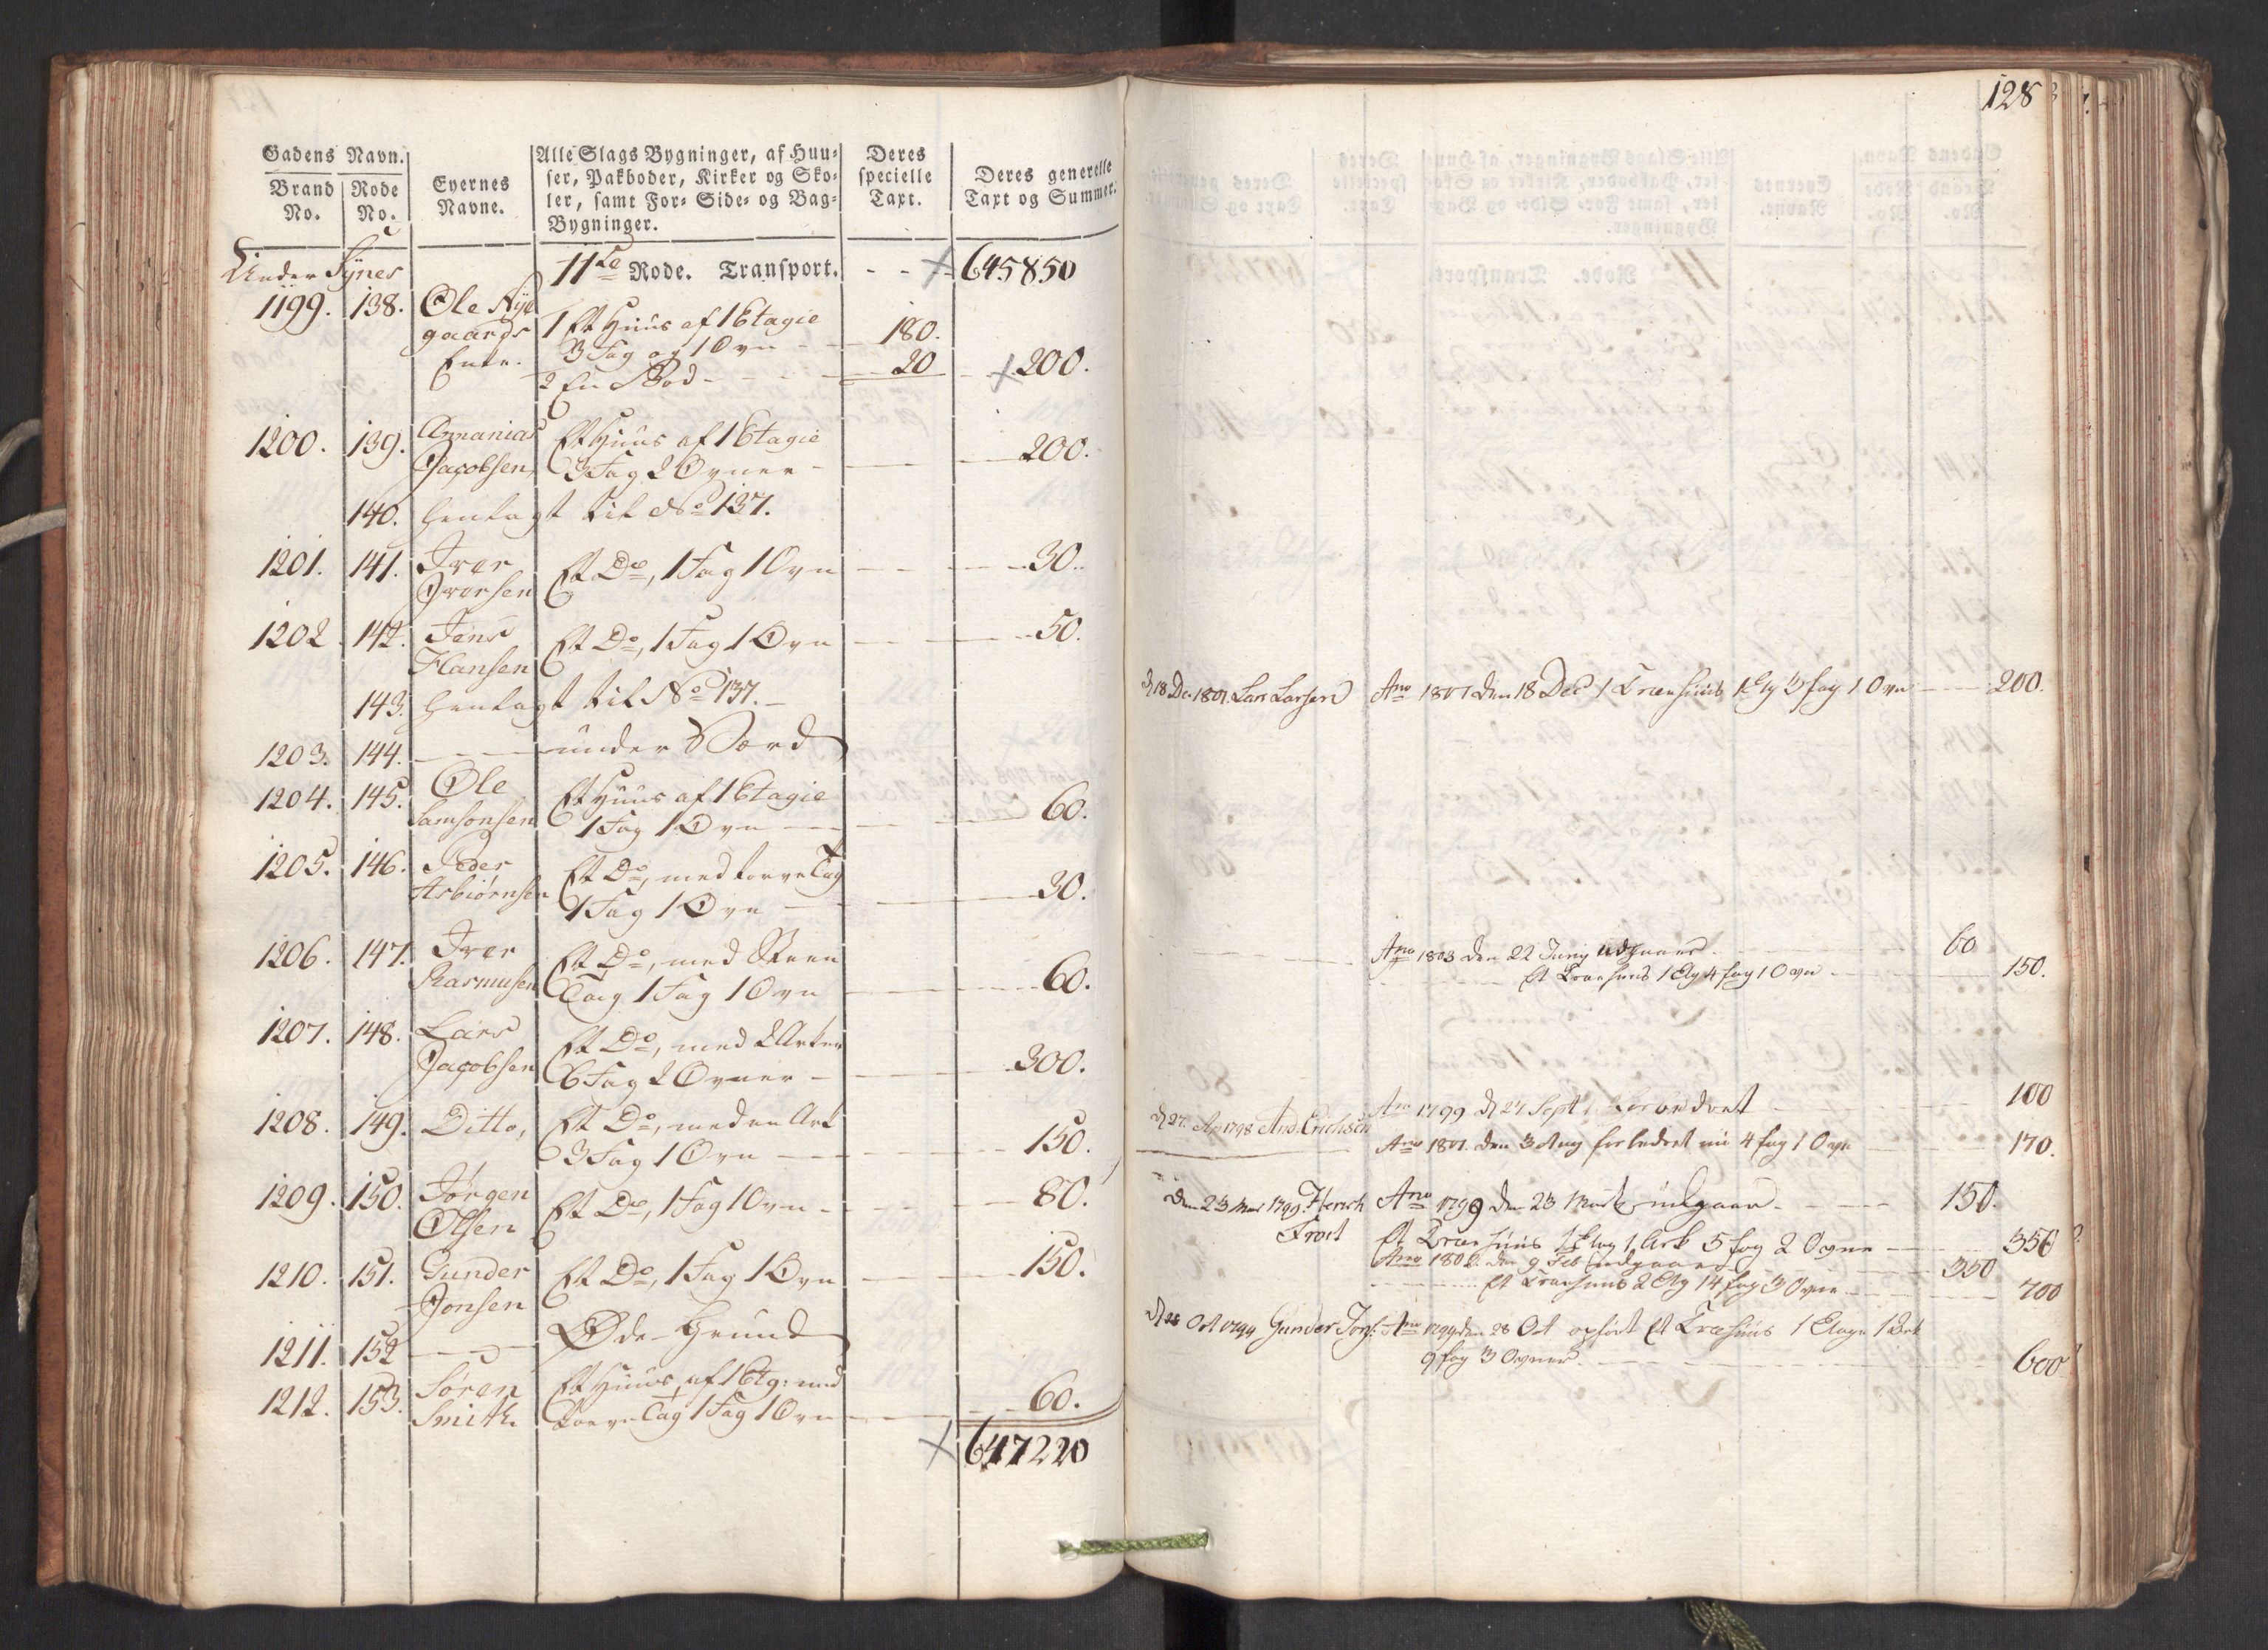 128
Gadens Navn.
Brand No.
Rode No.
Eyernes Navne.
Alle Slags Bygninger, af Huu-
ser, Pakboder, Kirker og Sko-
ler, samt For- Side- og Bag-
Bygninger.
Deres specielle Taxt.
Deres generelle Taxt og Summer.
Under Synes 11te Rode. Transport. 645850
1199. 138. Ole Nye 1 Et Huus af 1 Etagie
gaards 3 Fag og 1 Ovn 180.
Enke. 2 En Bod 20 200.
1200. 139. Ananias Et Huus af 1 Etagie
Jacobsen, 3 Fag 2 Ovner 200.
140. henlagt til No 137.
1201. 141. Iver Et Do, 1 Fag 1 Ovn 30.
Iversen
1202. 142. Jens Et Do, 1 Fag 1 Ovn 50.
Hansen
143. henlagt til No 137.
1203. 144. under
1204. 145. Ole Et Huus af 1 Etagie
Samsonsen 1 Fag 1 Ovn 60.
1205. 146. Peder Et Do, med torve Tag
Asbiørnsen 1 Fag 1 Ovn 30.
1206. 147. Iver Et Do, med Steen
Rasmusen Tag 1 Fag 1 Ovn 60.
1207. 148. Lars Et Do, med 2 Arker
Jacobsen 6 Fag 2 Ovner 300.
1208. 149. Ditto, Et Do, med en Ark
3 Fag 1 Ovn 150.
1209. 150. Jørgen Et Do, 1 Fag 1 Ovn 80.
Olsen
1210. 151. Gunder Et Do, 1 Fag 1 Ovn 150.
Jonsen
1211. 152 Øde Grund
1212. 153. Søren Et Huus af 1 Etg: med
Smith torve Tag 1 Fag 1 Ovn 60.
647220
d 18 Dec 1801. Lars Larsen Ano 1801 den 18 Dec 1 Træehuus 1 Etg 3 fag 1 Ovn 200.
Ano 1803 den 22 Juny udgaaer 60
Et Træehuus 1 Etg 4 fag 1 Ovn 150.
d 27. Ap 1798 And. Erichsen Ano 1799 d 27 Sept 100
Ano 1801. den 3 Aug forbedret nu 4 fag 1 Ovn 170.
den 23 Mar 1799 Ano 1799 den 23 Marts udgaaer 150.
Frost Et Træehuus 1 Etag 1 Ark 5 fag 2 Ovne 350
Ano 1802. den 9 Feb udgaaer 350
Et Træehuus 2 Etg 14 fag 3 Ovne 700
d 28 Oct 1799 Gunder Ano 1799 den 28 Oct opført Et Træehuus 1 Etage 1 Ark
9 fag 3 Ovner 600